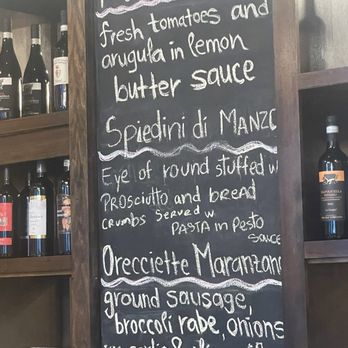 fresh tomatoes and
arugula in lemon
butter sauce
Spiedini di MANZO
Eye of round stuffed w
PROSCIUTTO and BREAD
CRUMBS SERVED w
PASTA in Pesto
SAUCE
Orecciette Maranzano
ground sausage,
broccoli rabe, onions